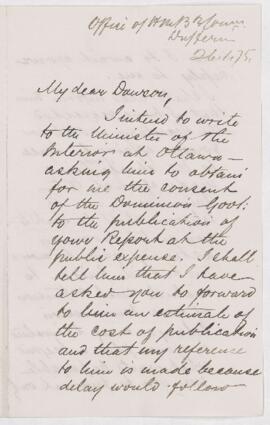 Office of H.M. B. N. A. Boundary Commn
Dufferin
26.1.75.
My dear Dawson,
I intend to write
to the Minister of the
Interior at Ottawa —
asking him to obtain
for me the consent
of the Dominion Govt:
to the publication of
your Report at the
public expense. I shall
tell him that I have
asked you to forward
to him an estimate of
the cost of publication
and that my reference
to him is made because
delay would follow